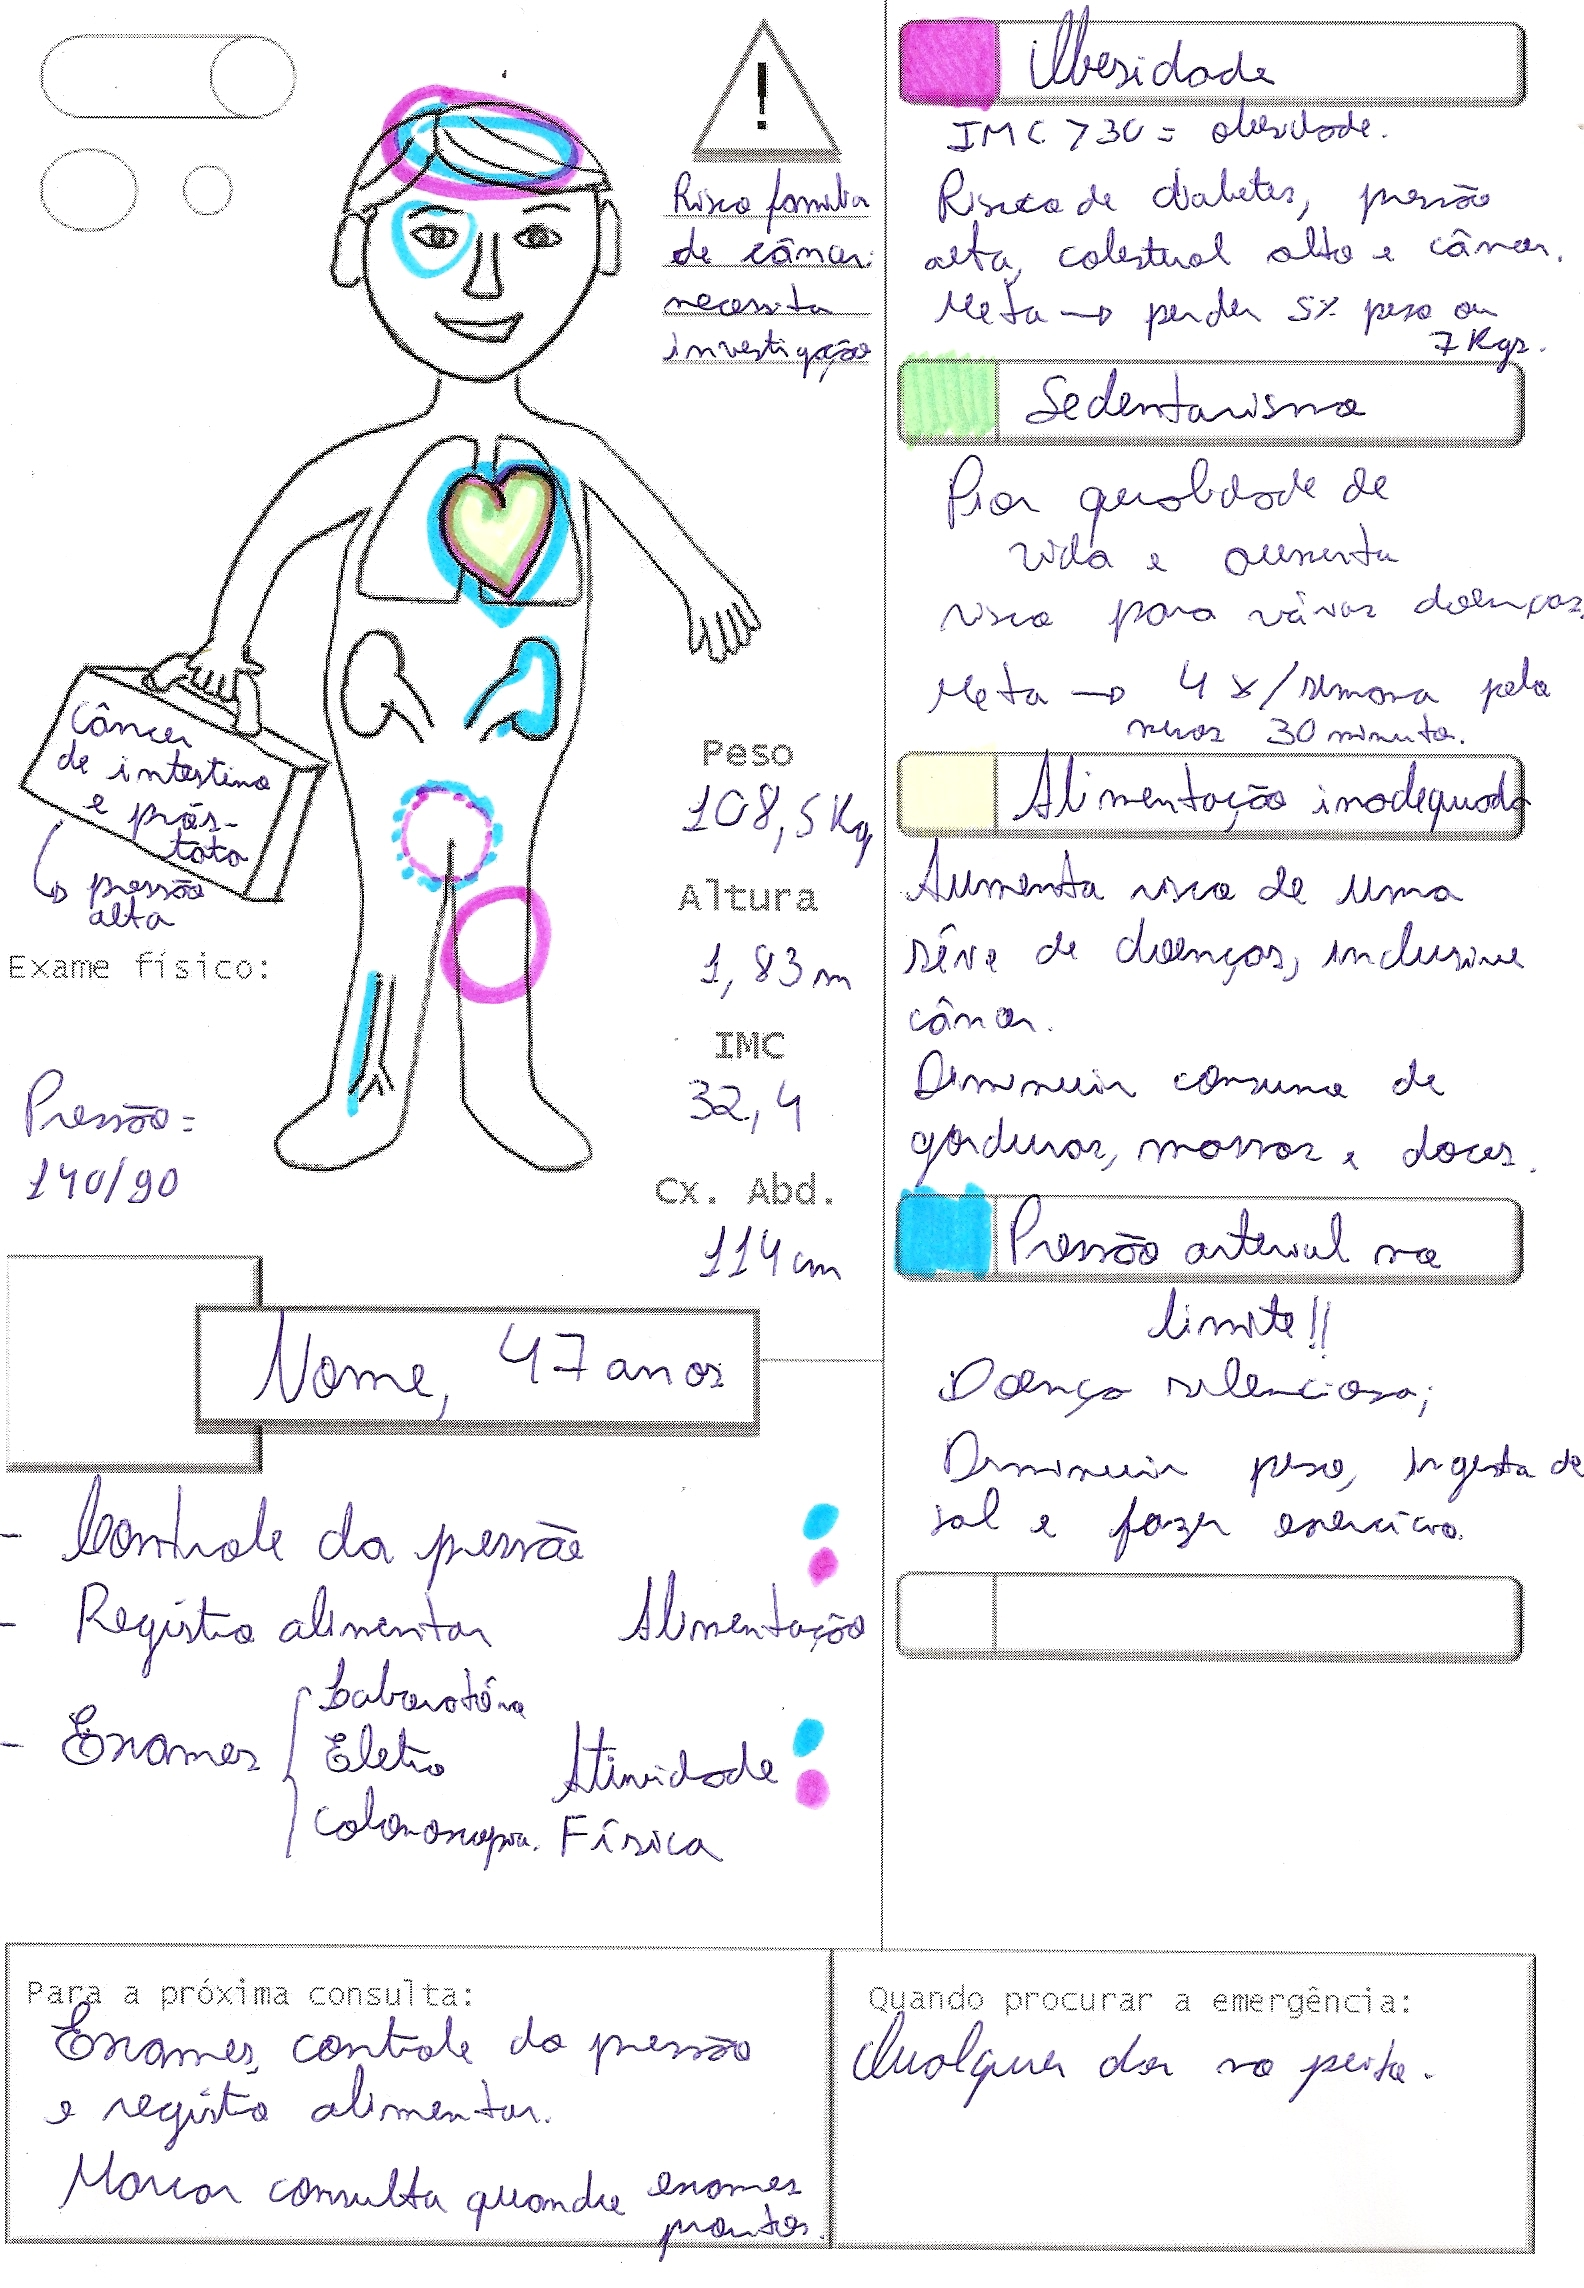 !
Risco familiar
de câncer:
necessita
investigação
Câncer
de intestino
e prós-
tata
↳ pressão
alta
Exame físico:
Pressão =
140/90
Peso
108,5 Kg
Altura
1,83 m
IMC
32,4
Cx. Abd.
114 cm
Nome, 47 anos
- Controle da pressão
- Registro alimentar
Alimentação
- Exames { Laboratório
Eletro
Colonoscopia.
Atividade
Física
Obesidade
IMC > 30 = obesidade.
Risco de diabetes, pressão
alta, colesterol alto e câncer.
Meta → perder 5% peso ou
7 Kgs.
Sedentarismo
Pior qualidade de
vida e aumenta
risco para várias doenças.
Meta → 4 x/semana pelo
menos 30 minutos.
Alimentação inadequada
Aumenta risco de uma
série de doenças, inclusive
câncer.
Diminuir consumo de
gorduras, massas e doces.
Pressão arterial no
limite!!
Doença silenciosa;
Diminuir peso, ingesta de
sal e fazer exercício.
Para a próxima consulta:
Exames, controle da pressão
e registro alimentar.
Marcar consulta quando exames
prontos.
Quando procurar a emergência:
Qualquer dor no peito.